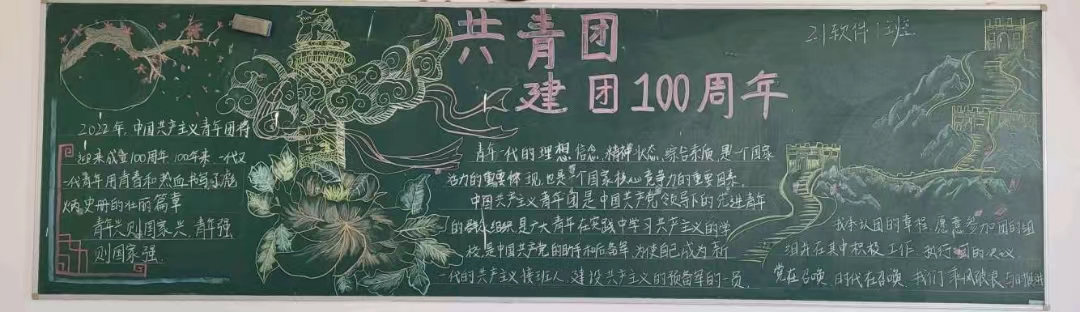 共青团
建团100周年
21软件1班
2022年,中国共产主义青年团将
迎来成立100周年,100年来,一代又
一代青年用青春和热血书写了彪
炳史册的壮丽篇章
青年兴则国家兴,青年强
则国家强.
青年一代的理想信念,精神状态,综合素质,是一个国家
活力的重要体现,也是一个国家核心竞争力的重要因素.
中国共产主义青年团是中国共产党领导下的先进青年
的群众组织是广大青年在实践中学习共产主义的学
校,是中国共产党的助手和后备军,为使自己成为新
一代的共产主义接班人,建设共产主义的预备军的一员.
我承认团的章程,愿意参加团的组
织并在其中积极工作、执行团的决议
党在召唤,时代在召唤,我们乘风破浪与时俱进